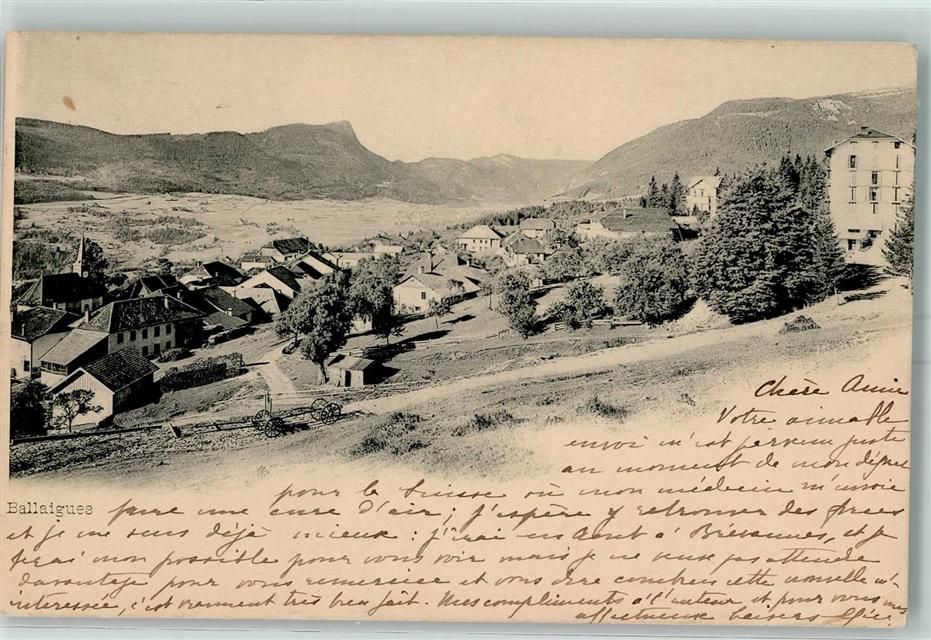 Chère Amie
Votre aimable
envoi m'est parvenu juste
au moment de mon départ
pour la Suisse où mon médecin m'envoie
Ballaigues
faire une cure d'air ; j'espère y retrouver des forces
et je me sens déjà mieux : j'irai en Août à Brévannes, et je
ferai mon possible pour vous voir mais je ne veux pas attendre
davantage pour vous remercier et vous dire combien cette nouvelle m'
intéressée, c'est vraiment très bien fait. Mes compliments à l'auteur et pour vous mes
affectueux baisers